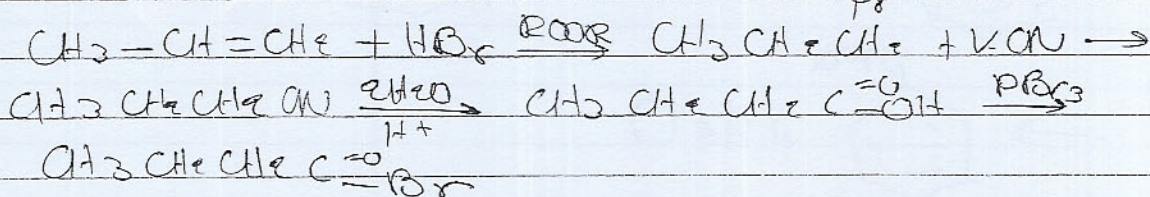 Br
CH3 – CH = CH2 + HBr ROOR→ CH3 CH2 CH2 + KCN →
CH3 CH2 CH2 CN 2H2O→ H+ CH3 CH2 CH2 C=O OH PBr3→
CH3 CH2 CH2 C=O –Br